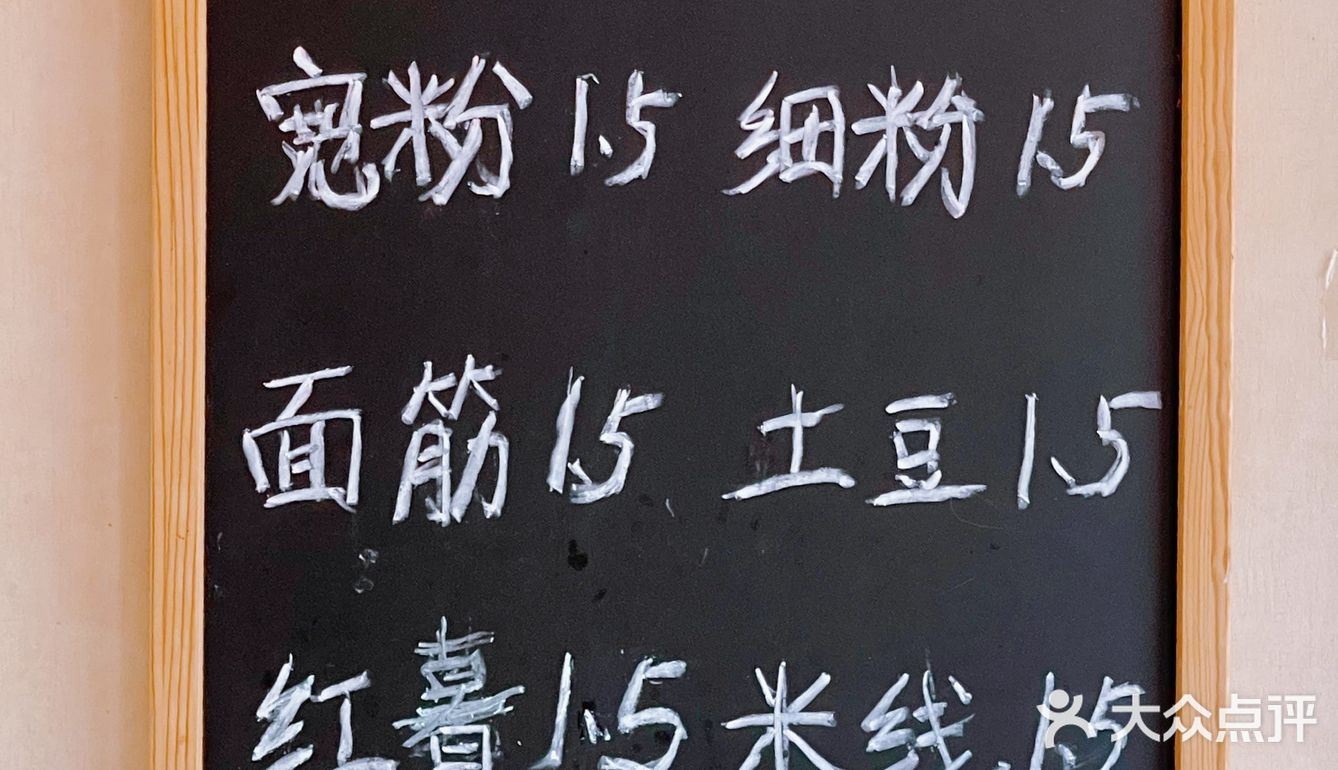 宽粉 1.5 细粉 1.5
面筋 1.5 土豆 1.5
红薯 1.5 米线 1.5
大众点评